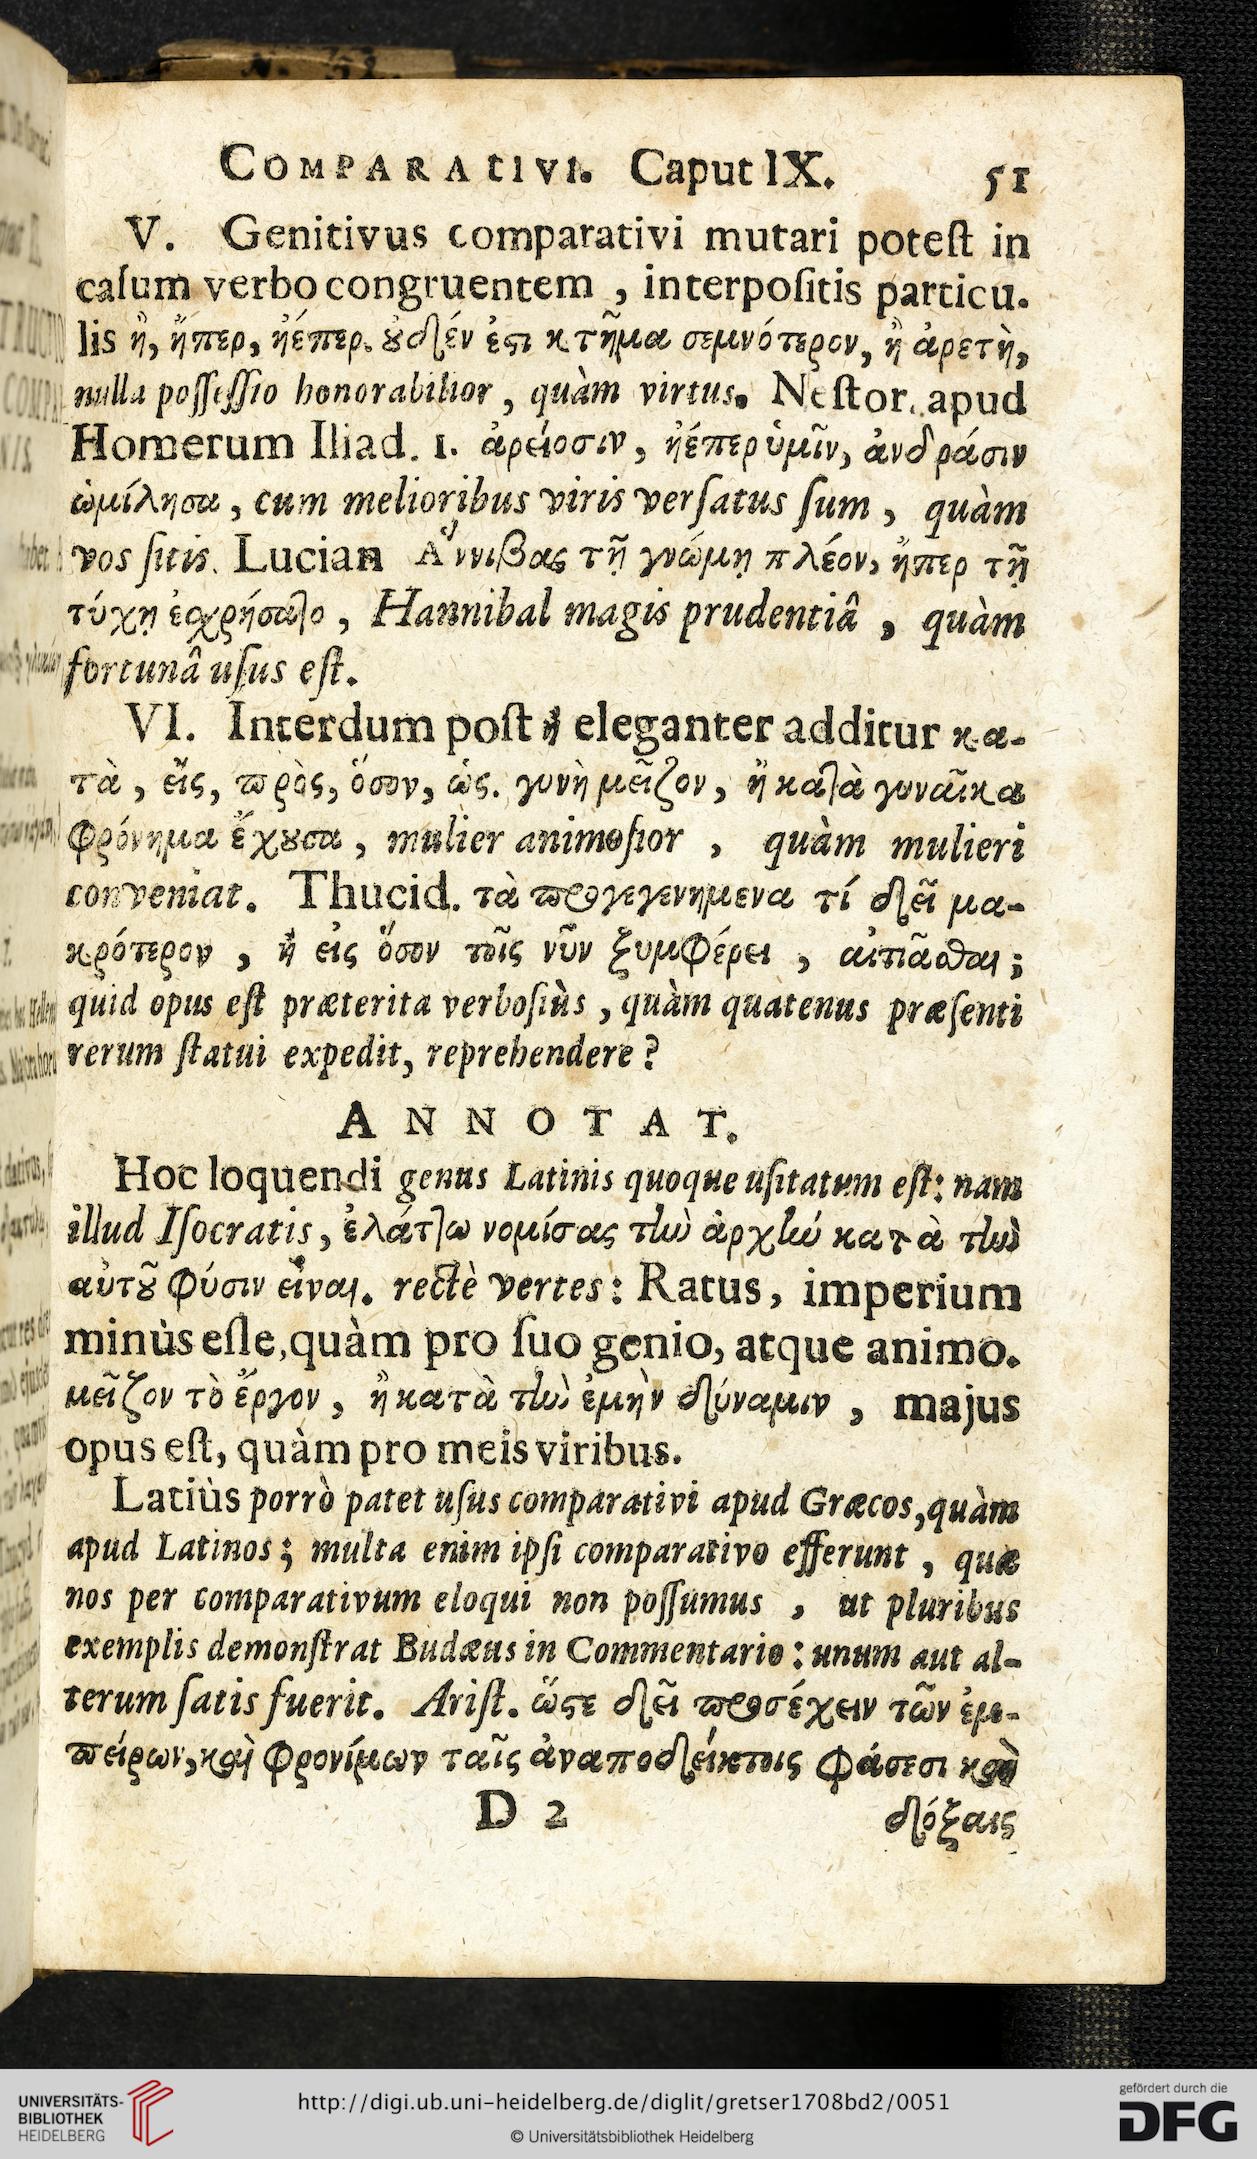 COMPARATIVI. Caput IX. 51
V. Genitivus comparativi mutari poteſt in
caſum verbo congruentem, interpoſitis particu-
lis ἢ, ἤπερ, ἠέπερ. ȣ̓δέν ἐϛι κτῆμα σεμνότερον, ἢ ἀρετὴ,
nulla poſſeſſio honorabilior, quàm virtus. Neſtor. apud
Homerum Iliad. 1. ἀρείοσιν, ἠέπερ ὑμῖν, ἀνδράσιν
ὡμίλησα, cum melioribus viris verſatus ſum, quàm
vos ſitis. Lucian Ἀννιβας τῇ γνώμῃ πλέον, ἤπερ τῇ
τύχῃ ἐχρήσατο, Hannibal magis prudentiâ, quàm
fortunâ uſus eſt.
VI. Interdum poſt ἢ eleganter additur κα-
τὰ, εἰς, πρὸς, ὅσον, ὡς. γυνὴ μεῖζον, ἢ κατὰ γυναῖκα
φρόνημα ἔχȣσα, mulier animoſior, quàm mulieri
conveniat. Thucid. τὰ προγεγενημενα τί δεῖ μα-
κρότερον, ἢ εἰς ὅσον τοῖς νῦν ξυμφέρει, αἰτιᾶσθαι;
quid opus eſt præterita verboſiùs, quàm quatenus præſenti
rerum ſtatui expedit, reprehendere?
ANNOTAT.
Hoc loquendi genus Latinis quoque uſitatum eſt: nam
illud Iſocratis, ἐλάττω νομίσας τὴν ἀρχὴν κατὰ τὴν
αὐτȣ͂ φύσιν εἶναι. rectè vertes: Ratus, imperium
minùs eſſe, quàm pro ſuo genio, atque animo.
μεῖζον τὸ ἔργον, ἢ κατὰ τὴν ἐμὴν δύναμιν, majus
opus eſt, quàm pro meis viribus.
Latiùs porrò patet uſus comparativi apud Græcos, quàm
apud Latinos; multa enim ipſi comparativo efferunt, quæ
nos per comparativum eloqui non poſſumus, ut pluribus
exemplis demonſtrat Budæus in Commentario: unum aut al-
terum ſatis fuerit. Ariſt. ὥϛε δεῖ προσέχειν τῶν ἐμ-
πείρων, καὶ φρονίμων ταῖς ἀναποδείκτοις φάσεσι καὶ
D 2 δόξαις
UNIVERSITÄTS-
BIBLIOTHEK
HEIDELBERG
http://digi.ub.uni-heidelberg.de/diglit/gretser1708bd2/0051
© Universitätsbibliothek Heidelberg
gefördert durch die
DFG